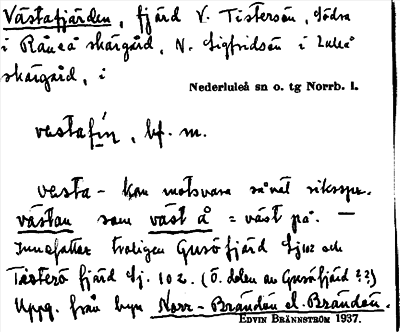 Västafjärden, fjärd V. Tisterön, södra
i Råneå skärgård, N. Sigfridsön i Luleå
skärgård, i
Nederluleå sn o. tg Norrb. l.
vestafín, bf. m.
vesta - kan motsvara såväl riksspr.
västan som väst å = väst på. —
Innefattar troligen Gusöfjärd Sj 102 och
Tisterö fjärd Sj. 102. (Ö. delen av Gusöfjärd??)
Uppg. från byn Norr-Brändön el. Brändön.
EDVIN BRÄNNSTRÖM 1937.